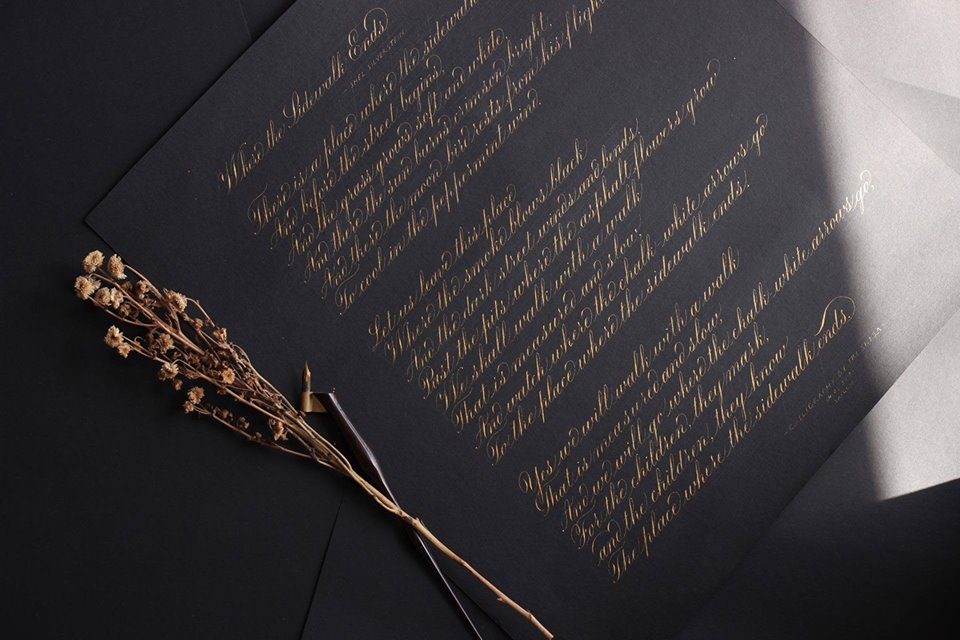 Where the Sidewalk Ends
SHEL SILVERSTEIN
There is a place where the sidewalk
And before the street begins,
And there the grass grows soft and white,
And there the sun burns crimson bright,
And there the moon-bird rests from his flight
To cool in the peppermint wind.
Let us leave this place
Where the smoke blows black
And the dark street winds and bends.
Past the pits where the asphalt flowers grow
We shall walk with a walk
That is measured and slow,
And watch where the chalk-white arrows go
To the place where the sidewalk ends.
Yes we will walk with a walk
That is measured and slow,
And we will go where the chalk-white arrows go,
For the children, they mark,
and the children, they know
The place where the sidewalk ends.